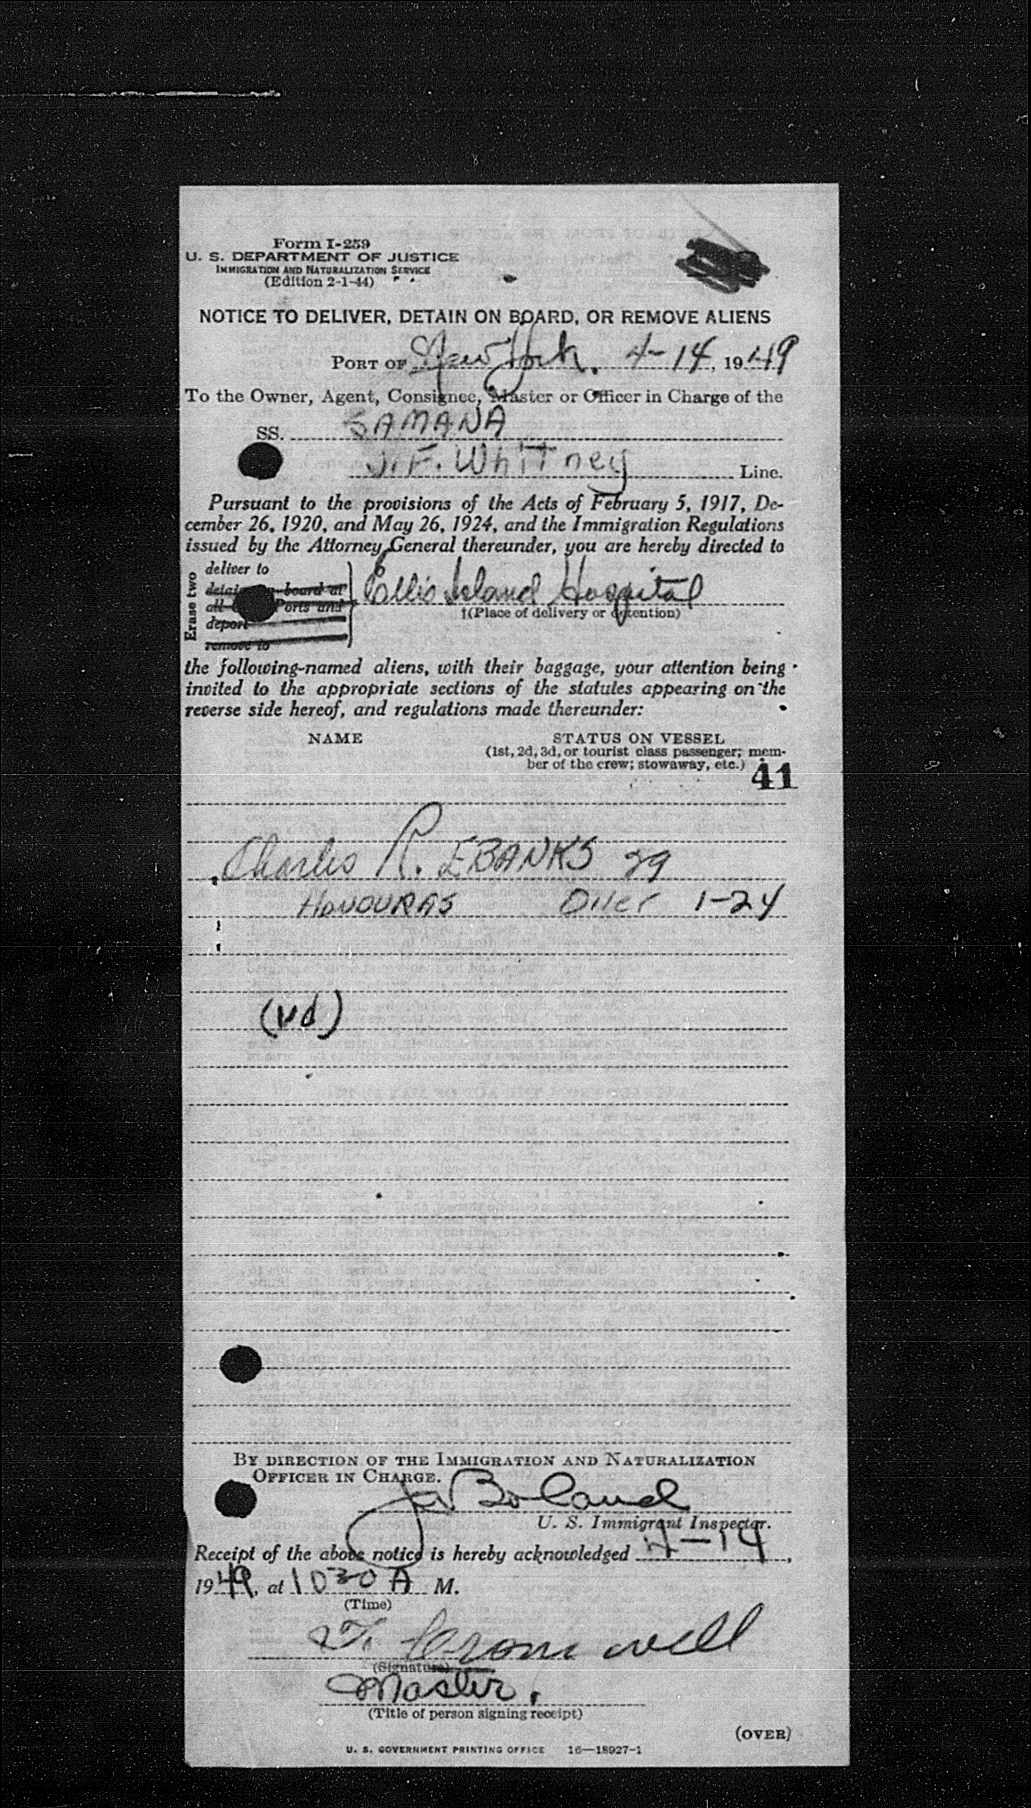 Form I-259
U. S. DEPARTMENT OF JUSTICE
IMMIGRATION AND NATURALIZATION SERVICE
(Edition 2-1-44)
NOTICE TO DELIVER, DETAIN ON BOARD, OR REMOVE ALIENS
PORT OF New York. 4-14, 1949
To the Owner, Agent, Consignee, Master or Officer in Charge of the
SS. SAMANA
J. F. Whitney Line.
Pursuant to the provisions of the Acts of February 5, 1917, De-
cember 26, 1920, and May 26, 1924, and the Immigration Regulations
issued by the Attorney General thereunder, you are hereby directed to
Erase two
deliver to
detain on board at
all Ports and
deport
remove to
Ellis Island Hospital
†(Place of delivery or detention)
the following-named aliens, with their baggage, your attention being
invited to the appropriate sections of the statutes appearing on the
reverse side hereof, and regulations made thereunder:
NAME STATUS ON VESSEL
(1st, 2d, 3d, or tourist class passenger; mem-
ber of the crew; stowaway, etc.)
41
Charles R. EBANKS 29
HONDURAS Oiler 1-24
(Vd)
BY DIRECTION OF THE IMMIGRATION AND NATURALIZATION
OFFICER IN CHARGE.
Boland
U. S. Immigrant Inspector.
Receipt of the above notice is hereby acknowledged 4-14,
1949, at 1030 A M.
(Time)
T. Cromwell
(Signature)
Master.
(Title of person signing receipt)
(OVER)
U. S. GOVERNMENT PRINTING OFFICE 16—18927-1